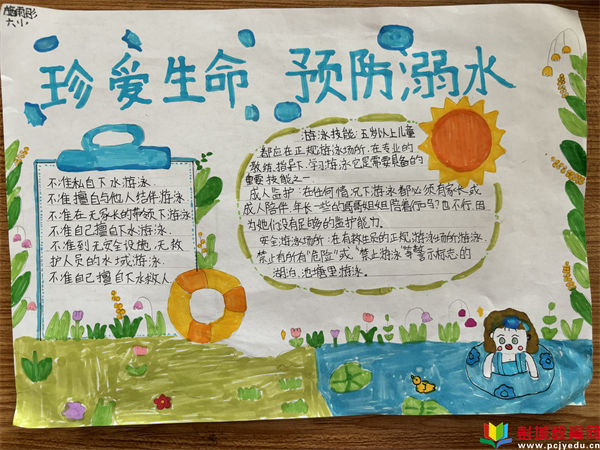 大小
珍爱生命 预防溺水
不准私自下水游泳
不准擅自与他人结伴游泳
不准在无家长的带领下游泳
不准自己擅自下水游泳.
不准到无安全设施,无救
护人员的水域游泳.
不准自己擅自下水救人
游泳技能:五岁以上儿童
都应在正规游泳场所,在专业的
教练指导下,学习游泳它是需要具备的
重要技能之一.
成人监护:在任何情况下游泳都必须有家长或
成人陪伴,年长一些的哥哥姐姐陪着行吗?也不行,因
为他们没有足够的监护能力.
安全游泳场所:在有救生员的正规游泳场所游泳.
禁止有所有"危险"或"禁止游泳"等警示标志的
湖泊,池塘里游泳.
www.pcjyedu.cn